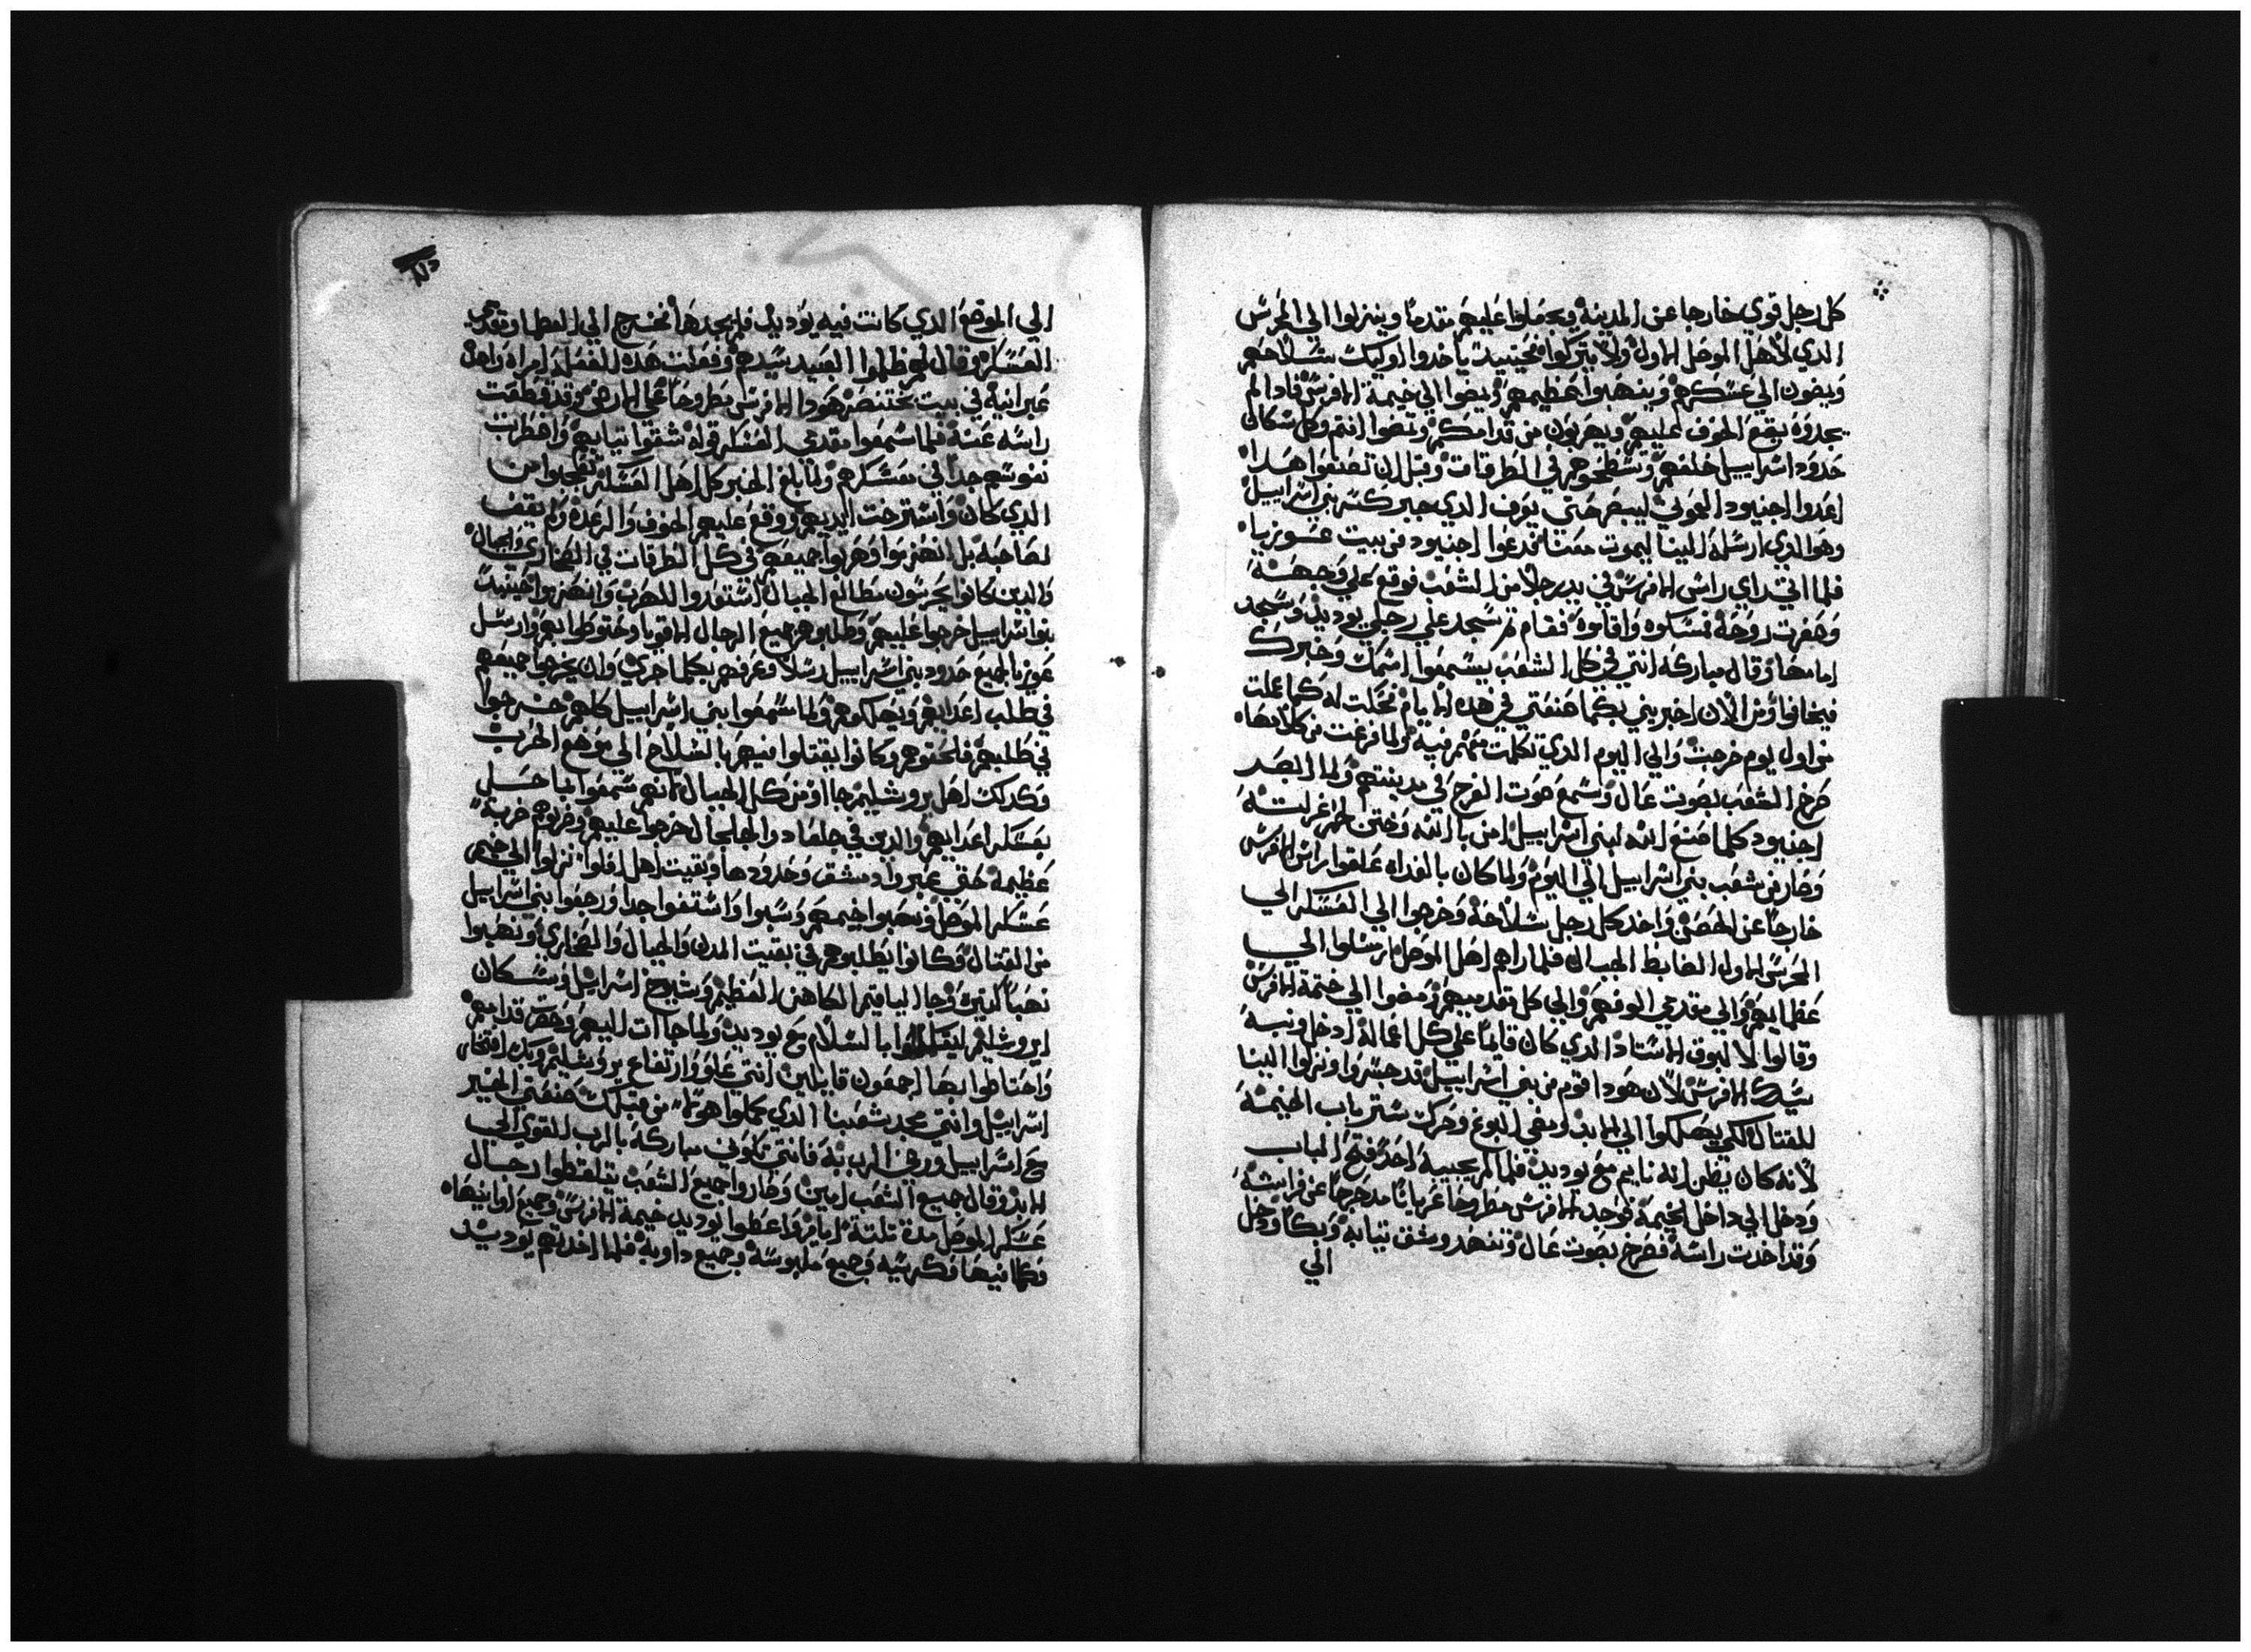 كل رجل قوي خارجا عن المدينة ويجعلوا عليهم مقدما وينزلوا الي الحرس
الذي لأهل الموصل الاول ولا يتركوا فحينيذ ياخدوا اوليك سلاحهم
ويمضون الي عسكرهم وينهبوا عظيمهم ويمضوا الي خيمة الافرس فادا لم
يجدوه يقع الخوف عليهم ويهربون من قدامكم وتمضوا انتم وكل سكان
حدود اسراييل خلفهم وتسطحوهم في الطرقات وقبل ان تصنعوا هدا
اعدوا اجنيود العموني ليبصر حتي يعرف الدي خبر كتم بني اسراييل
وهو الدي ارسله الينا ليموت معنا فدعوا اجنيود من بيت عوزيا
فلما اتي راي راس الافرس في يد رجلا من الشعب فوقع علي وجهه
وصغرت روحه فمسكوه واقاموه فقام ثم سجد علي رجلي يوديد وسجد
امامها وقال مباركه انتي في كل الشعب يسمعوا اسمك وخبرك
فيخافوا ومن الان اخبريني بكلما صنعتي في هده الايام فحكت له كما عملت
من اول يوم خرجت والي اليوم الدي تكلمت معهم فيه ولما فرغت من كلامها
صرخ الشعب بصوت عال وسمع صوت الفرح في مدينتهم ولما ابصر
اجنيود كلما صنع الله لبني اسراييل امن بالله وختن لحم غرلته
وصار من شعب بني اسراييل الي اليوم ولما كان بالغداه علقوا راس الافرس
خارجا عن الحصن واخد كل رجل سلاحه وخرجوا الي العسكر الي
الحرس الاول الضابط الجبال فلما راهم اهل الموصل ارسلوا الي
عظمايهم والي مقدمي الوفهم والي كل مقدميهم ومضوا الي خيمة الافرس
وقالوا لابوق الاستاد الدي كان قايما علي كل اعماله ادخل ونبه
سيدك الافرس لان هودا قوم من بني اسراييل قد جسروا ونزلوا الينا
للقتال لكي يهلكوا الي الابد فمضي ابوغ وحرك ستر باب الخيمه
لانه كان يظن انه نايم مع يوديد فلما لم يجيبه احد فتح الباب
ودخل الي داخل الخيمة فوجد الافرس مطروحا عريانا مدحرجا عن فراشه
وقد اخدت راسه فصرخ بصوت عال وتنهد وشق تيابه وبكا ودخل
الي
الي الموضع الدي كانت فيه يوديد فلم يجدها فخرج الي العظما ومقدمي
العسكر وقال لهم ظلموا العبيد سيدهم وفعلت هده الفعله امراه واحده
عبرانية في بيت بختنصر هودا الافرس مطروحا علي الارض وقد قطعت
راسه عنه فلما سمعوا مقدمي العسكر قوله شقوا تيابهم واضطربت
نفوسهم جدا في معسكرهم ولما بلغ الخبر كل اهل العسكر تعجبوا من
الدي كان واسترخت ايديهم ووقع عليهم الخوف والرعده ولم يقف
لصاحبه بل انهزموا وهربوا جميعهم في كل الطرقات في الصحاري والجبال
والدين كانوا يحرسون مطالع الجبال استعدوا للهرب وانهزموا فحينيد
بنوا اسراييل خرجوا عليهم وطلبوهم جميع الرجال الاقويا واحتوطوا بهم وارسل
عوزيا لجميع حدود بني اسراييل رسلا وعرفهم بكلما جري وان يخرجوا جميعهم
في طلب اعدايهم ويهلكوهم ولما سمعوا بني اسراييل كلهم خرجوا
في طلبهم فلحقوهم وكانوا يقتلوا فيهم بالسلاح الي موضع الهرب
وكدلك اهل يروشليم جاوا من كل الجبال لانهم سمعوا لما حصل
بعسكر اعدايهم والدين في جلعاد والجلجال خرجوا عليهم وضربوهم ضربة
عظيمة حتي عبروا دمشق وحدودها وبقيت اهل افلوا نزلوا الي خيم
عسكر الموصل ونهبوا خيمهم وسبوا واستغنوا جدا ورجعوا بني اسراييل
من القتال وكانوا يطلبوهم في بقيت المدن والجبال والصحاري ونهبوا
نهبا كتير وجا الياقيم الكاهن العظيم وشيوخ اسراييل وسكان
ايروشليم ليتكلموا بالسلام مع يوديد ولما جاات اليهم وحضرت قدامهم
واحتاطوا بها اجمعون قايلين انتي علو وارتفاع يروشليم وبك افتخار
اسراييل وانتي مجد شعبنا الدي كملوا هولاء من قبلك صنعتي الخير
مع اسراييل ورضي الرب به فانتي تكوني مباركه بالرب القوي الي
الابد وقال جميع الشعب امين وصاروا جميع الشعب يتلقطوا رحال
عسكر الموصل مدة تلتة ايام واعطوا يوديد خيمة الافرس وجميع اوانيها
وكلما فيها وكرسيه وجميع ملبوسه وجميع داوبه فلما اخدتهم يوديد